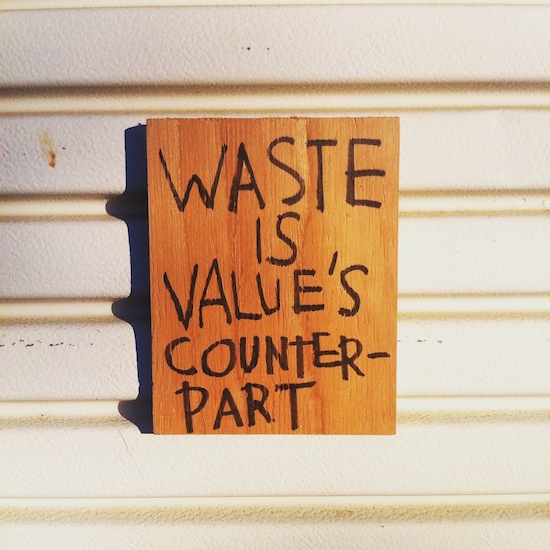 WASTE
IS
VALUE'S
COUNTER-
PART